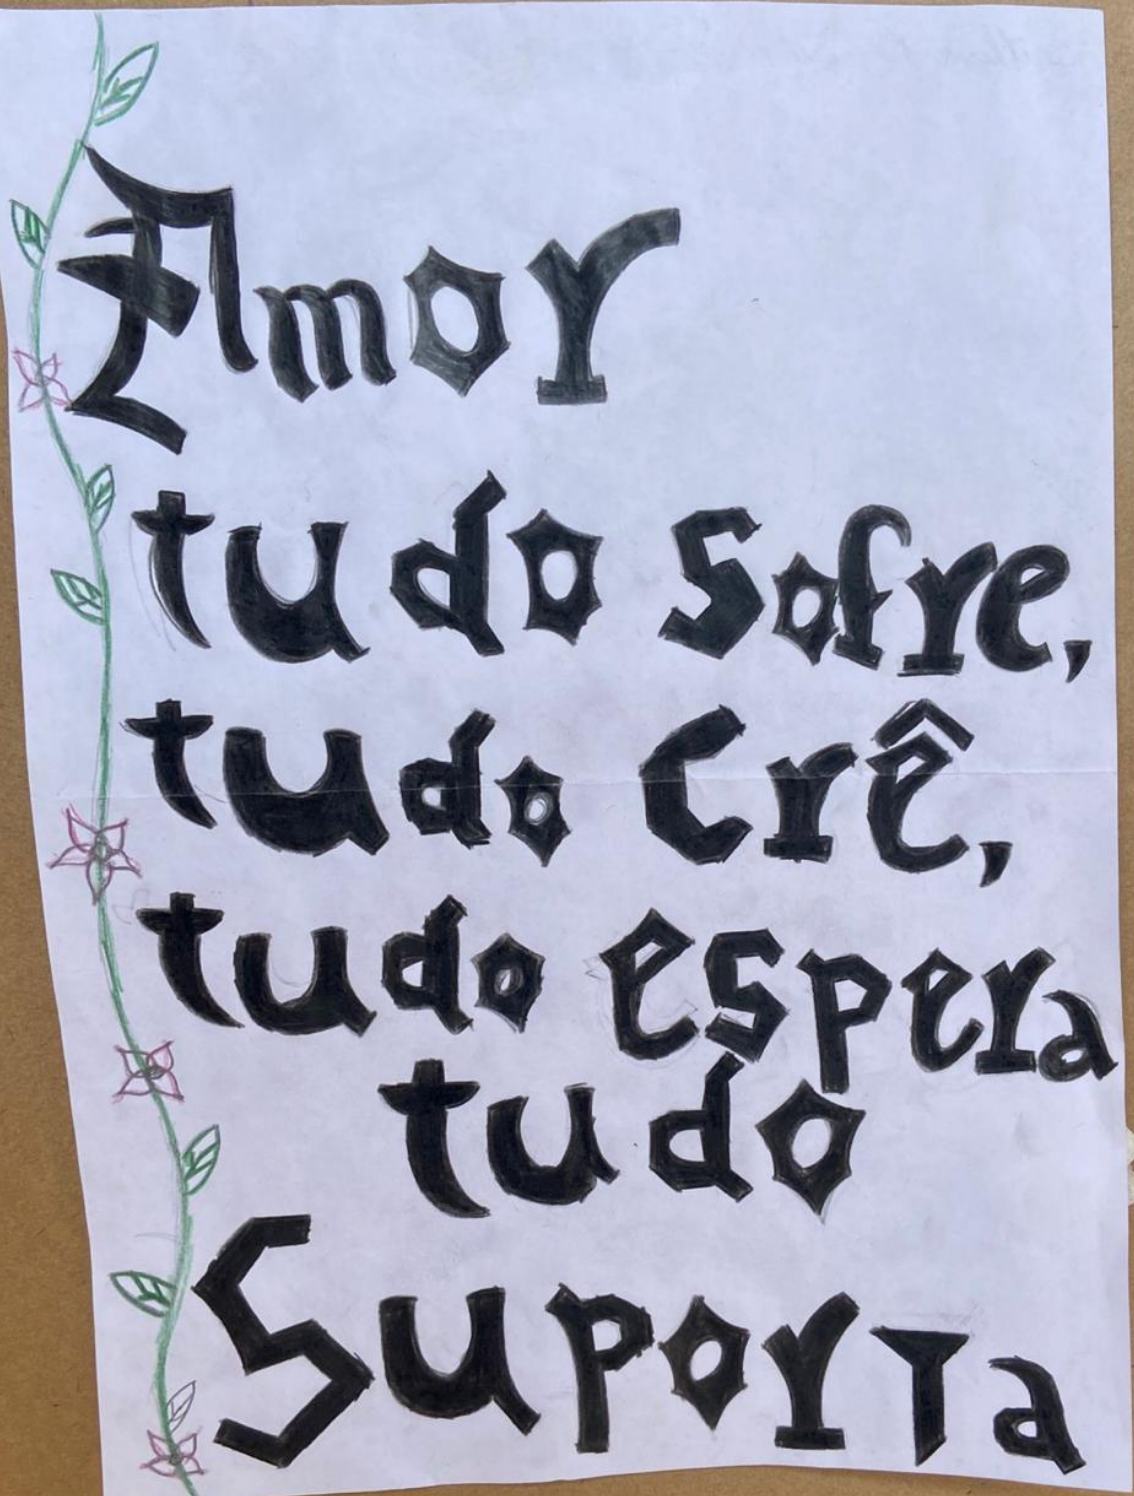 Amor
tudo sofre,
tudo crê,
tudo espera
tudo
Suporta